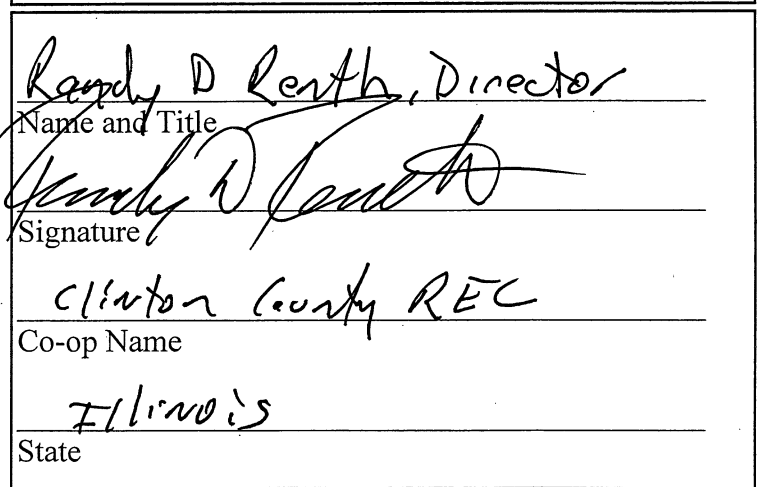 Randy D Renth, Director
Name and Title
Randy D Renth
Signature
Clinton County REC
Co-op Name
Illinois
State